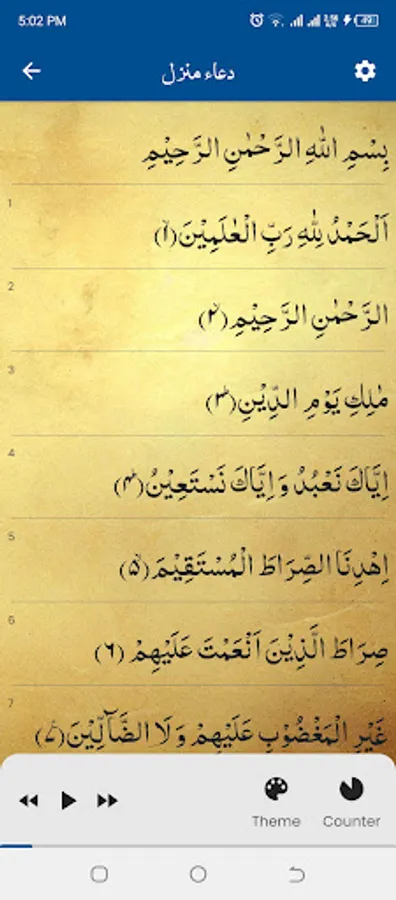 5:02 PM 49
دعاء منزل
بِسْمِ اللهِ الرَّحْمٰنِ الرَّحِيْمِ
1
اَلْحَمْدُ لِلّٰهِ رَبِّ الْعٰلَمِيْنَ(۱)
2
الرَّحْمٰنِ الرَّحِيْمِ(۲)
3
مٰلِكِ يَوْمِ الدِّيْنِ(۳)
4
اِيَّاكَ نَعْبُدُ وَ اِيَّاكَ نَسْتَعِيْنُ(۴)
5
اِهْدِنَا الصِّرَاطَ الْمُسْتَقِيْمَ(۵)
6
صِرَاطَ الَّذِيْنَ اَنْعَمْتَ عَلَيْهِمْ(۶)
7
غَيْرِ الْمَغْضُوْبِ عَلَيْهِمْ وَ لَا الضَّآلِّيْنَ(۷)
Theme Counter